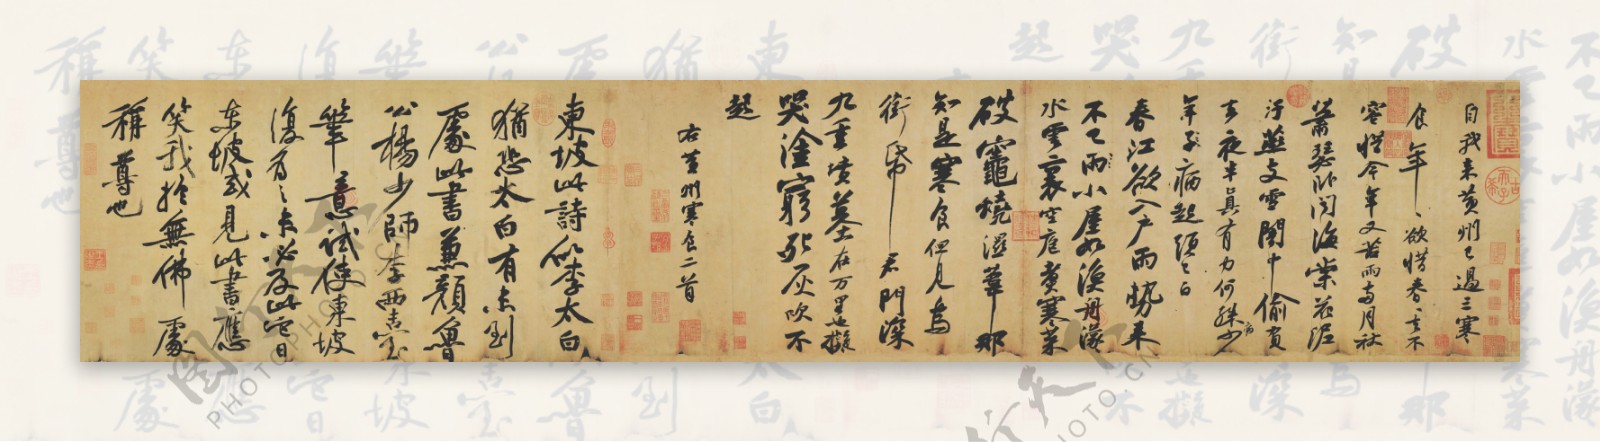 自我来黄州已過三寒
食年〻欲惜春〻去不
容惜今年又苦雨兩月秋
蕭瑟卧聞海棠花泥
汙燕支雪闇中偷負
去夜半真有力何殊少
年子病起頭已白
春江欲入户雨勢来
不已雨小屋如漁舟濛〻
水雲裏空庖煑寒菜
破竈燒濕葦那
知是寒食但見烏
銜帋君門深
九重墳墓在万里也擬
哭塗窮死灰吹不
起
右黄州寒食二首
東坡此詩似李太白
猶恐太白有未到
處此書兼顏魯
公楊少師李西臺
筆意試使東坡
復為之未必及此它日
东坡或見此書應
笑我於無佛處
稱尊也